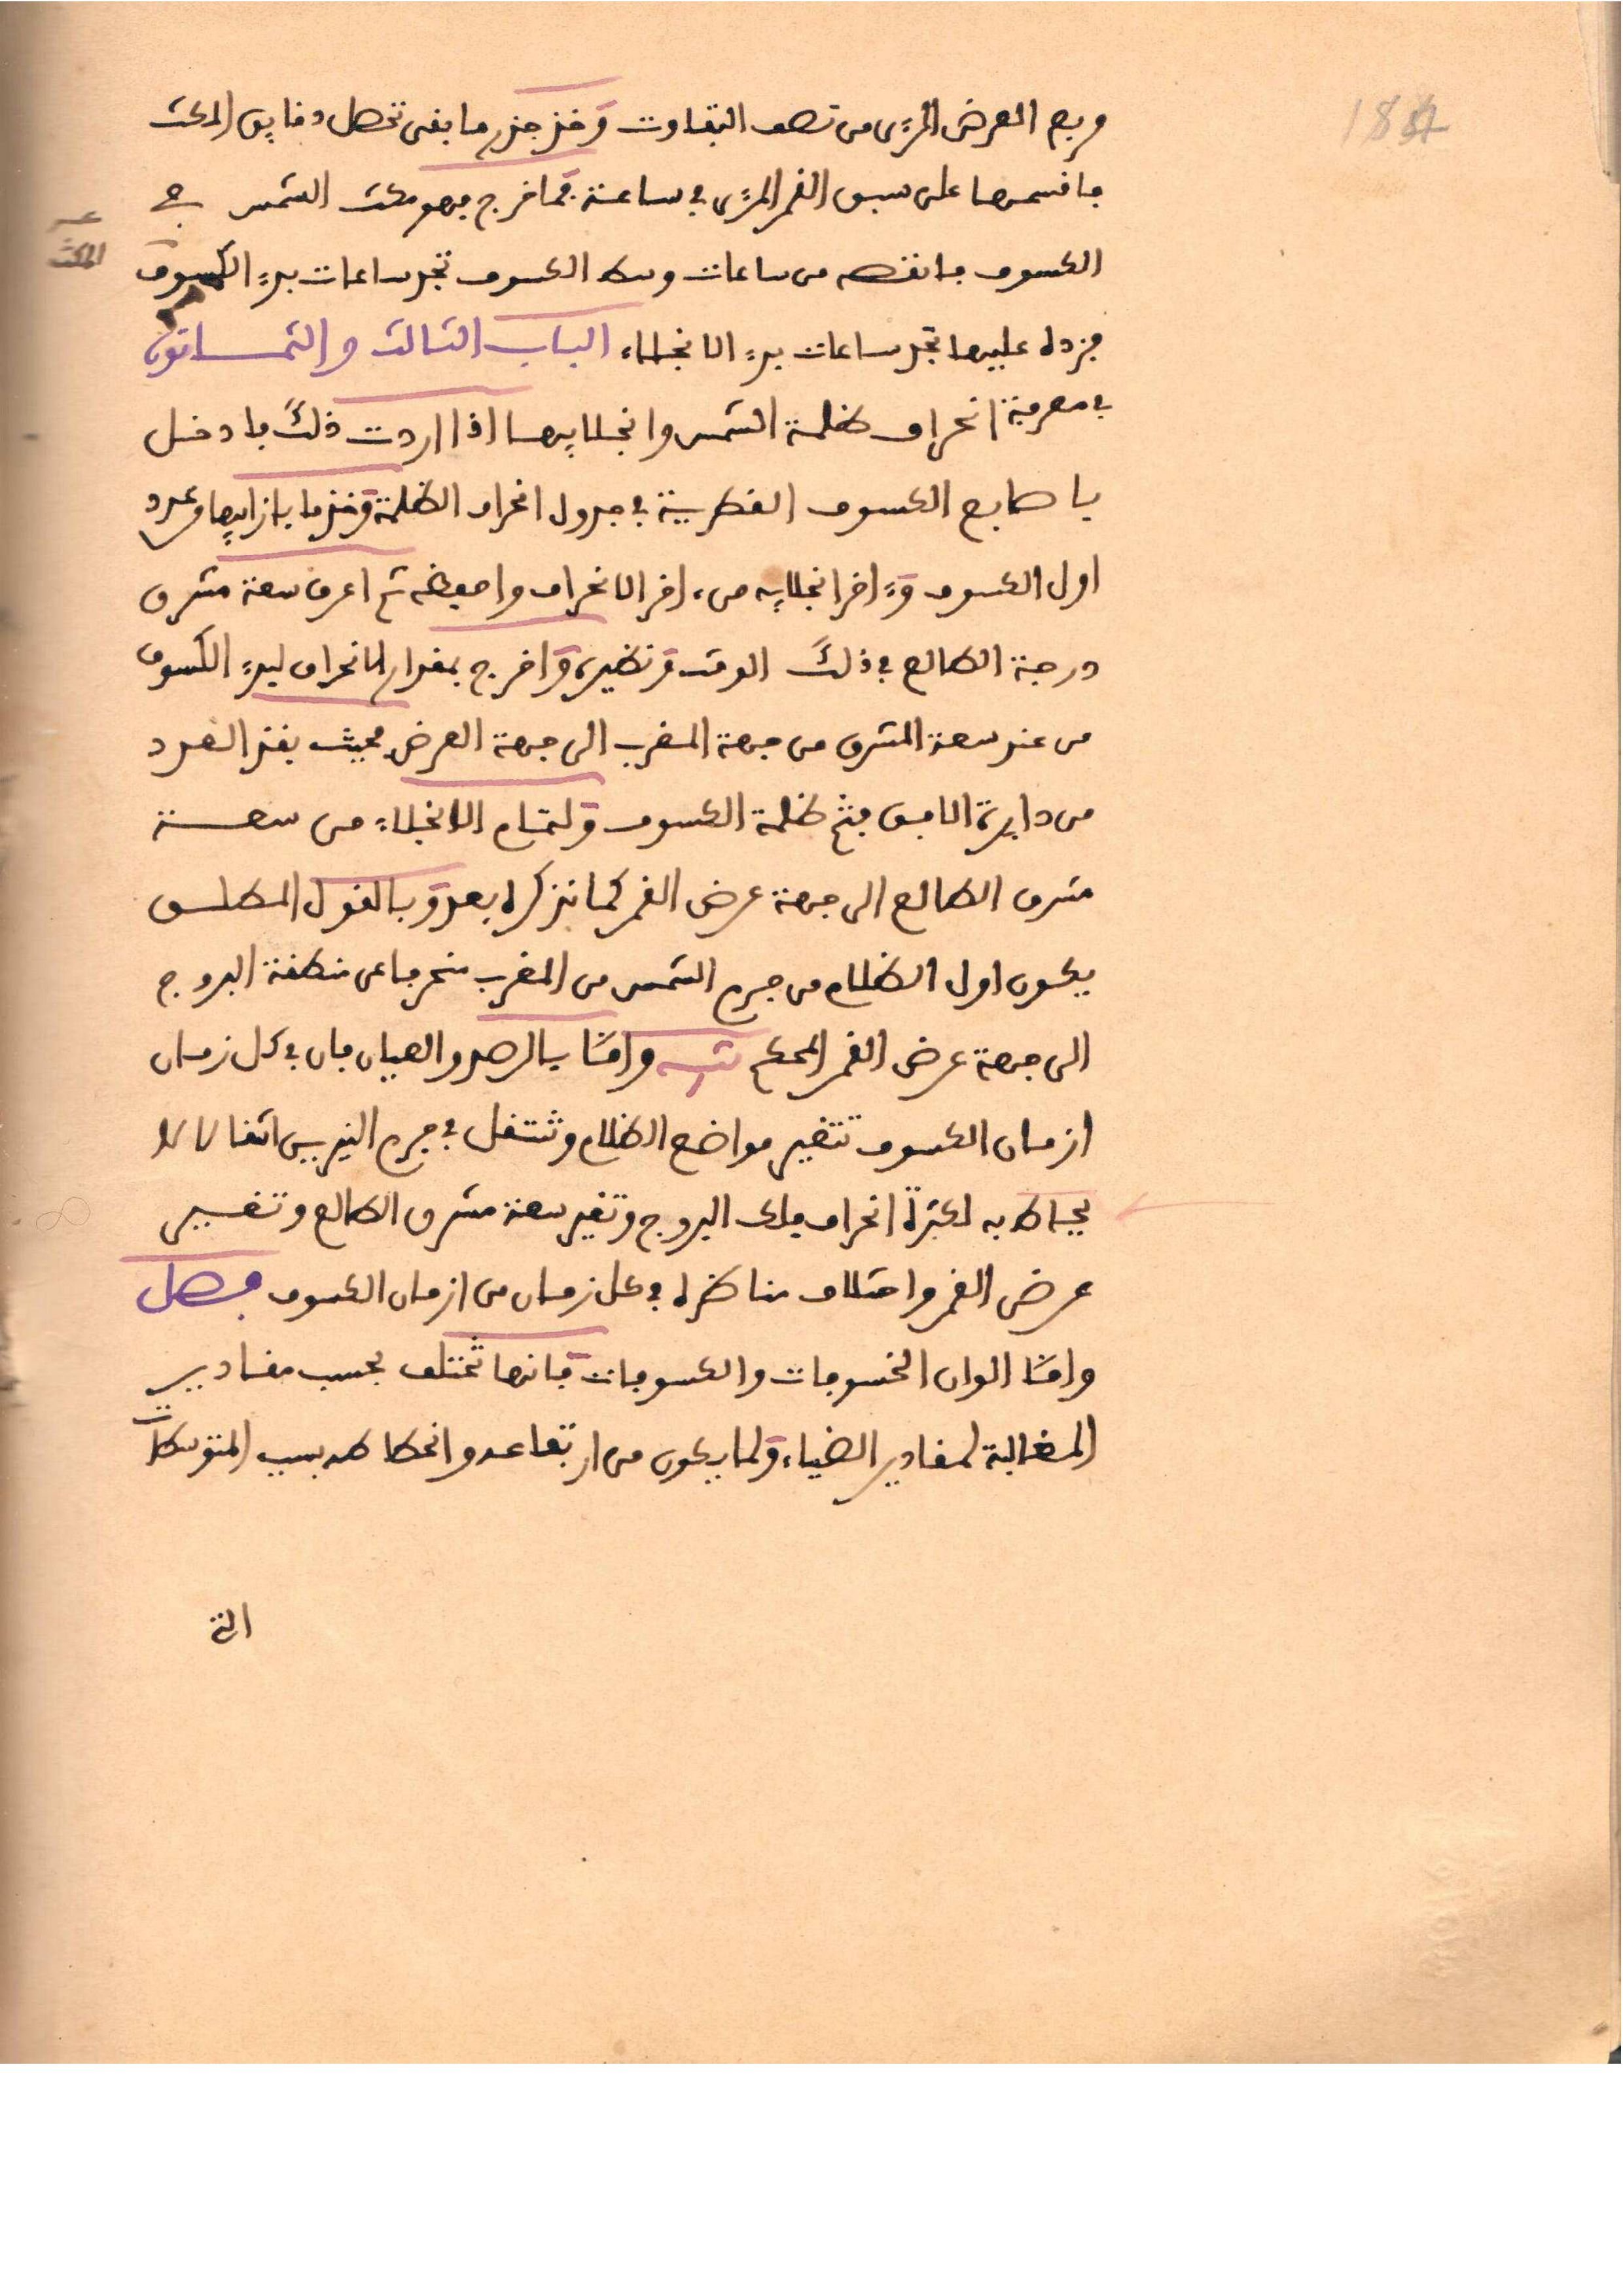 184
مربع العرض المرءى من نصف التفاوت وخذ جذر ما بقى تحصل دقايق المكث
فاقسمها على سبق القمر المرءى في ساعة فما خرج فهو مكث الشمس في
المكث
الكسوف فانقصه من ساعات وسط الكسوف تجد ساعات بدء الكسوف
فزده عليها تجد ساعات بدء الانجلاء الباب الثالث والثمانون
في معرفة انحراف ظلمة الشمس وانجلايها اذا اردت ذلك فادخل
باصابع الكسوف القطرية في جدول انحراف الظلمة وخذ ما بازايها وعدد
اول الكسوف وء اخر انجلايه من اخر الانحراف واحفظه ثم اعرف سعة مشرق
درجة الطالع في ذلك الوقت ونظيره واخرج بمقدار الانحراف لبدء الكسوف
من عند سعة المشرق من جهة المغرب الى جهة العرض فحيث نفذ العدد
من دايرة الافق فثم ظلمة الكسوف ولتمام الانجلاء من سعة
مشرق الطالع الى جهة عرض القمر كما نذكره بعد وبالقول المطلق
يكون اول الظلام من جرم الشمس من المغرب منحرفا عن منطقة البروج
الى جهة عرض القمر المحكم واما بالرصد والعيان فان في كل زمان
ازمان الكسوف تتغير مواضع الظلام وتنتقل في جرم النيرين انتقالا لا
يحاط به لكثرة انحراف فلك البروج وتغير سعة مشرق الطالع وتغيير
عرض القمر واختلاف مناظره في كل زمان من ازمان الكسوف فصل
واما الوان الخسوفات والكسوفات فانها تختلف بحسب مقادير
المقابلة لمقادير الضياء ولما يكون من ارتفاعه وانحطاطه بسبب المتوسطات
التي